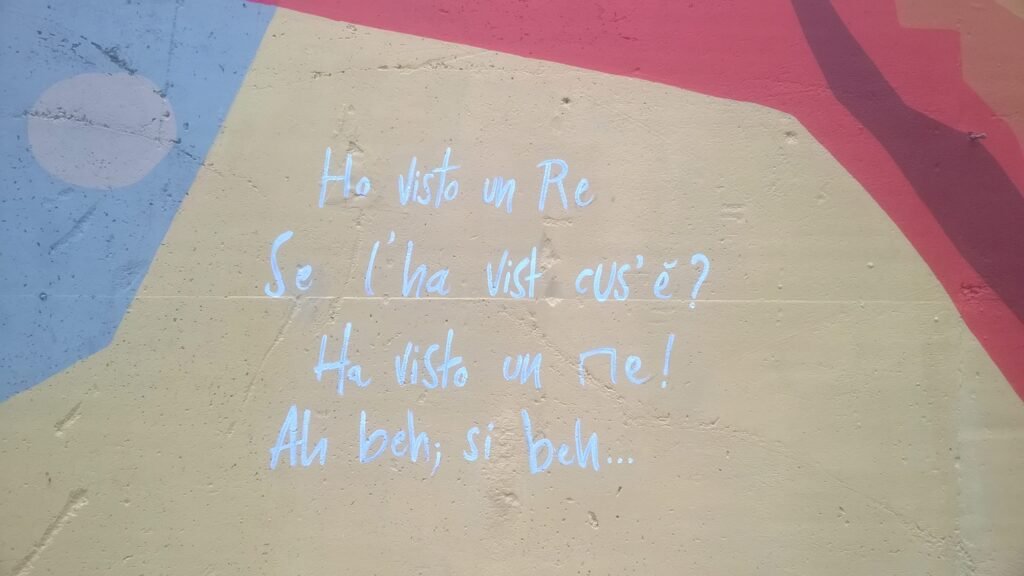 Ho visto un Re
Se l'ha vist cus'è?
Ha visto un re!
Ah beh; si beh...